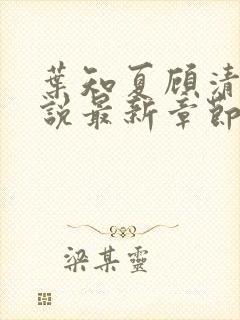 葉知夏顾清
說最新章節
梁某靈